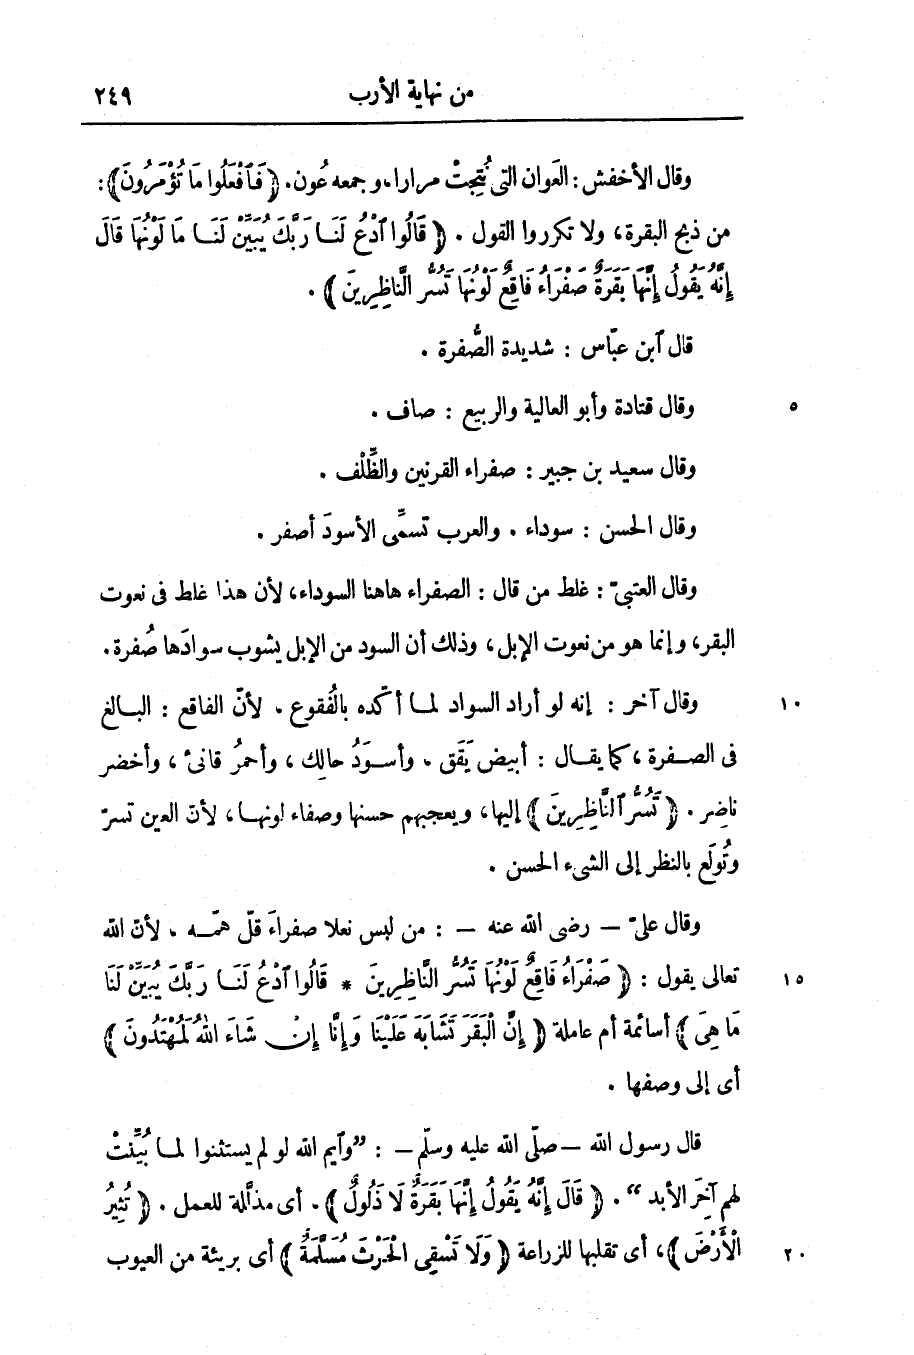 من نهاية الأرب ٢٤٩
وقال الأخفش: العَوان التى نُتِجتْ مرارا، وجمعه عُون. ﴿فَافْعَلُوا مَا تُؤْمَرُونَ﴾:
من ذبح البقرة، ولا تكرروا القول. ﴿قَالُوا ٱدْعُ لَنَا رَبَّكَ يُبَيِّنْ لَنَا مَا لَوْنُهَا قَالَ
إِنَّهُ يَقُولُ إِنَّهَا بَقَرَةٌ صَفْرَاءُ فَاقِعٌ لَوْنُهَا تَسُرُّ النَّاظِرِينَ﴾.
قال ٱبن عبّاس: شديدة الصُّفرة.
وقال قتادة وأبو العالية والربيع: صاف. ٥
وقال سعيد بن جبير: صفراء القرنين والظِّلْف.
وقال الحسن: سوداء. والعرب تسمِّى الأسودَ أصفر.
وقال العتبىّ: غلط من قال: الصفراء هاهنا السوداء، لأن هذا غلط فى نعوت
البقر، وإنما هو من نعوت الإبل، وذلك أن السود من الإبل يشوب سوادَها صُفرة.
وقال آخر: إنه لو أراد السواد لما أكّده بالفُقوع. لأنّ الفاقع: البالغ ١٠
فى الصفرة، كما يقال: أبيض يَقَق. وأسوَدُ حالك، وأحمرُ قانئ، وأخضر
ناضِر. ﴿تَسُرُّ ٱلنَّاظِرِينَ﴾ إليها، ويعجبهم حسنها وصفاء لونها، لأنّ العين تسرّ
وتُولَع بالنظر إلى الشىء الحسن.
وقال علىّ — رضى الله عنه —: من لبس نعلا صفراءَ قلّ همّه. لأنّ الله
تعالى يقول: ﴿صَفْرَاءُ فَاقِعٌ لَوْنُهَا تَسُرُّ النَّاظِرِينَ * قَالُوا ٱدْعُ لَنَا رَبَّكَ يُبَيِّنْ لَنَا ١٥
مَا هِىَ﴾ أسائمة أم عاملة ﴿إِنَّ الْبَقَرَ تَشَابَهَ عَلَيْنَا وَإِنَّا إِنْ شَاءَ اللهُ لَمُهْتَدُونَ﴾
أى إلى وصفها.
قال رسول الله —صلّى الله عليه وسلّم—: ”وٱيم الله لو لم يستثنوا لما بُيِّنتْ
لهم آخِرَ الأبد“. ﴿قَالَ إِنَّهُ يَقُولُ إِنَّهَا بَقَرَةٌ لَا ذَلُولٌ﴾. أى مذلَّلة للعمل. ﴿تُثِيرُ
الْأَرْضَ﴾، أى تقلبها للزراعة ﴿وَلَا تَسْقِى الْحَرْثَ مُسَلَّمَةٌ﴾ أى بريئة من العيوب ٢٠